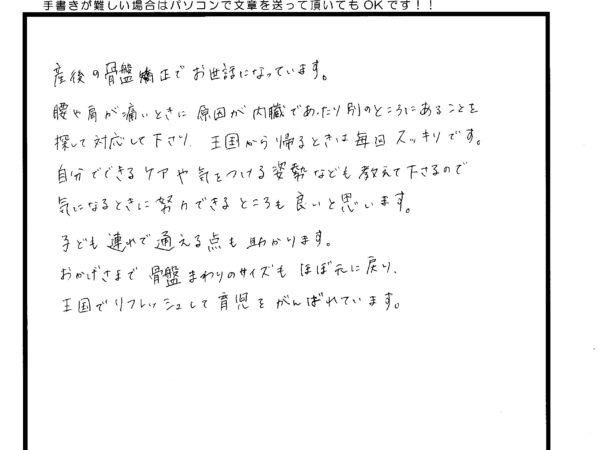 手書きが難しい場合はパソコンで文章を送って頂いてもOKです！！
産後の骨盤矯正でお世話になっています。
腰や肩が痛いときに原因が内臓であったり別のところにあることを
探して対応して下さり、王国から帰るときは毎回スッキリです。
自分でできるケアや気をつける姿勢なども教えて下さるので
気になるときに努力できるところも良いと思います。
子ども連れで通える点も助かります。
おかげさまで骨盤まわりのサイズもほぼ元に戻り、
王国でリフレッシュして育児をがんばれています。